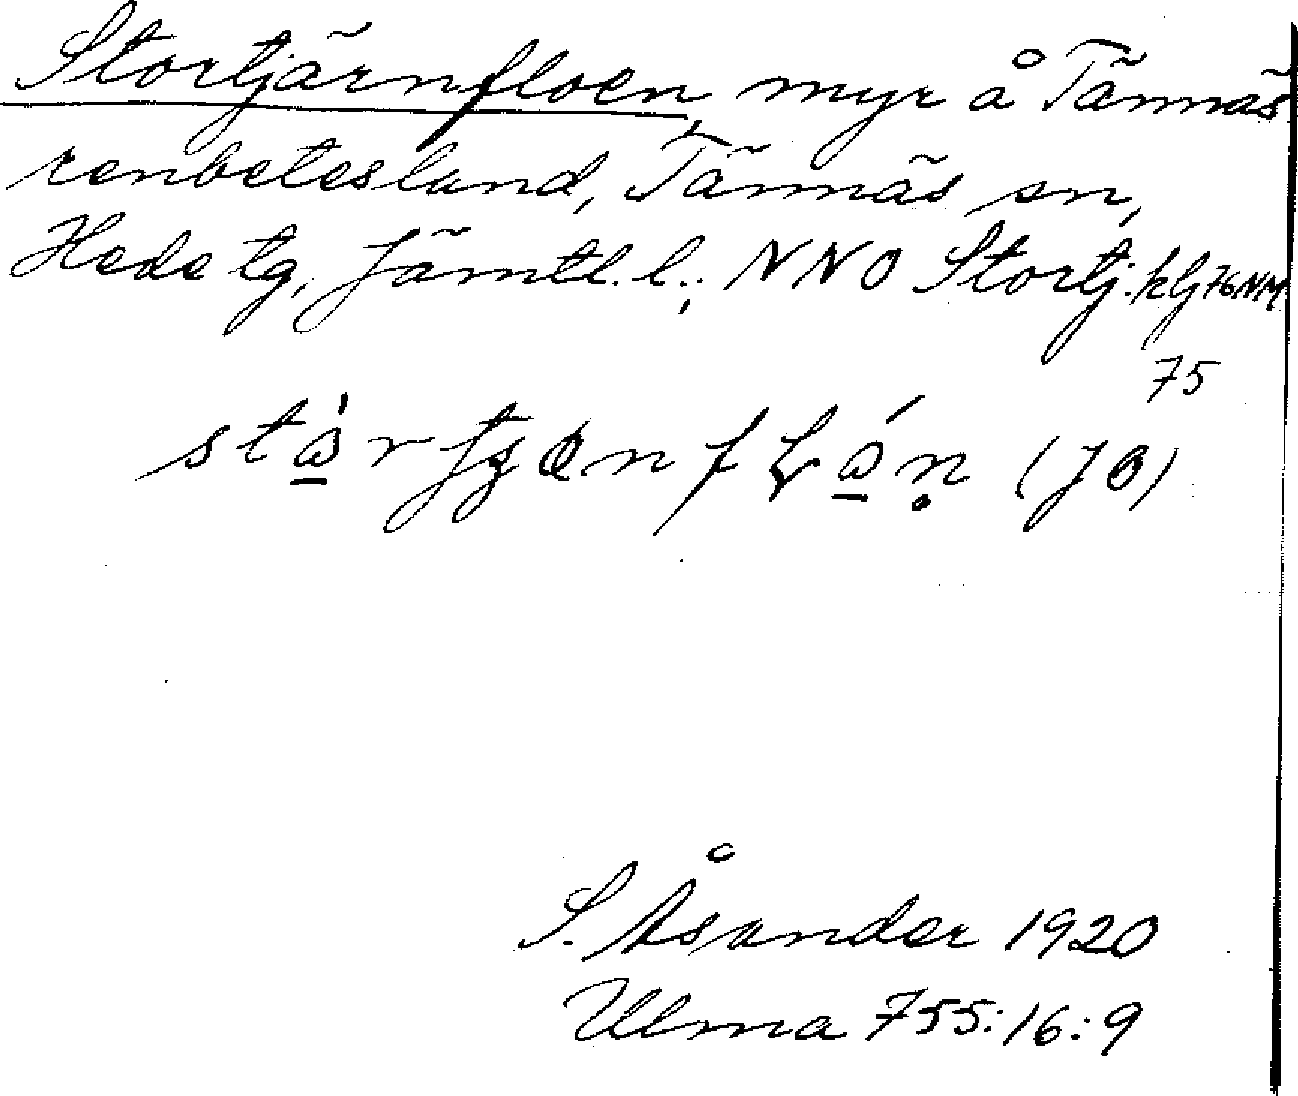 Stortjärnfloen, myr å Tännäs
renbetesland, Tännäs sn,
Hede tg, Jämtl. l.; NNO Stortj.
75
(JO)
S. Åsander 1920
Ulma 755:16:9